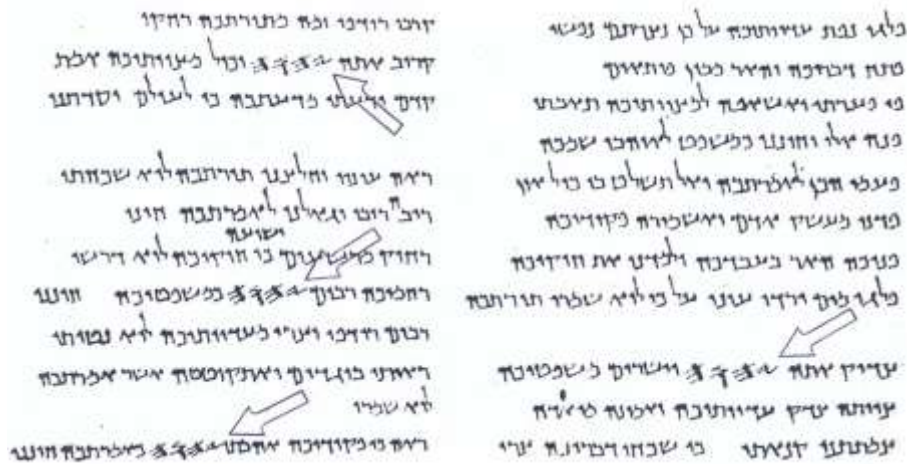 פלגי נפת עדוותיכה על כן נצרתם נפשי
פתח דבריכה והאר מבין פותאים
פי פערתי ואשאפה למצוותיכה תאבתי
פנה אלי וחונני כמשפט לאוהבי שמכה
פעמי הכן לאמרתכה ואל תשלט בי כול און
פדני מעשק אדם ואשמורה פקודיכה
פניכה האר בעבדכה ולמדני את חוקיכה
פלגי מים ירדו עיני על כי לוא שמרו תורתכה
צדיק אתה 𐤉𐤄𐤅𐤄 וישרים משפטיכה
צויתה צדק עדוותיכה ואמונה מאדה
צמתתני קנאתי כי שכחו דבריכה צרי
קרבו רודפי זמה מתורתכה רחקו
קרוב אתה 𐤉𐤄𐤅𐤄 וכול מצוותיכה אמת
קדם ידעתי מדעתכה כי לעולם יסדתני
ראה עוניי וחלצני תורתכה לוא שכחתי
ריבה ריבי וגאלני לאמרתכה חיני
ישועה
רחוק מרשעים כי חוקיכה לוא דרשו
רחמיכה רבים 𐤉𐤄𐤅𐤄 כמשפטיכה חונני
רבים רודפי וצרי מעדוותיכה לוא נטיתי
ראיתי בוגדים ואתקוטטה אשר אמרתכה
לוא שמרו
ראה כי פקודיכה אהבתי 𐤉𐤄𐤅𐤄 כאמרתכה חונני